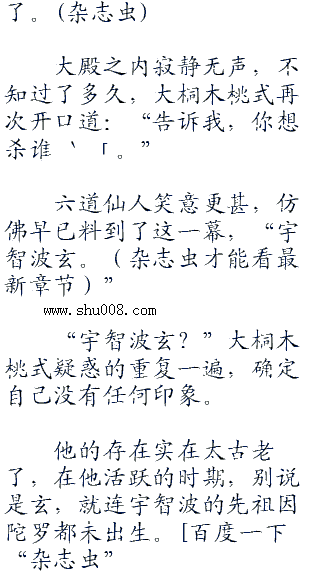 了。(杂志虫)
大殿之内寂静无声，不
知过了多久，大桐木桃式再
次开口道：“告诉我，你想
杀谁‵「。”
六道仙人笑意更甚，仿
佛早已料到了这一幕，“宇
智波玄。（杂志虫才能看最
新章节）”
www.shu008.com
“宇智波玄？”大桐木
桃式疑惑的重复一遍，确定
自己没有任何印象。
他的存在实在太古老
了，在他活跃的时期，别说
是玄，就连宇智波的先祖因
陀罗都未出生。[百度一下
“杂志虫”